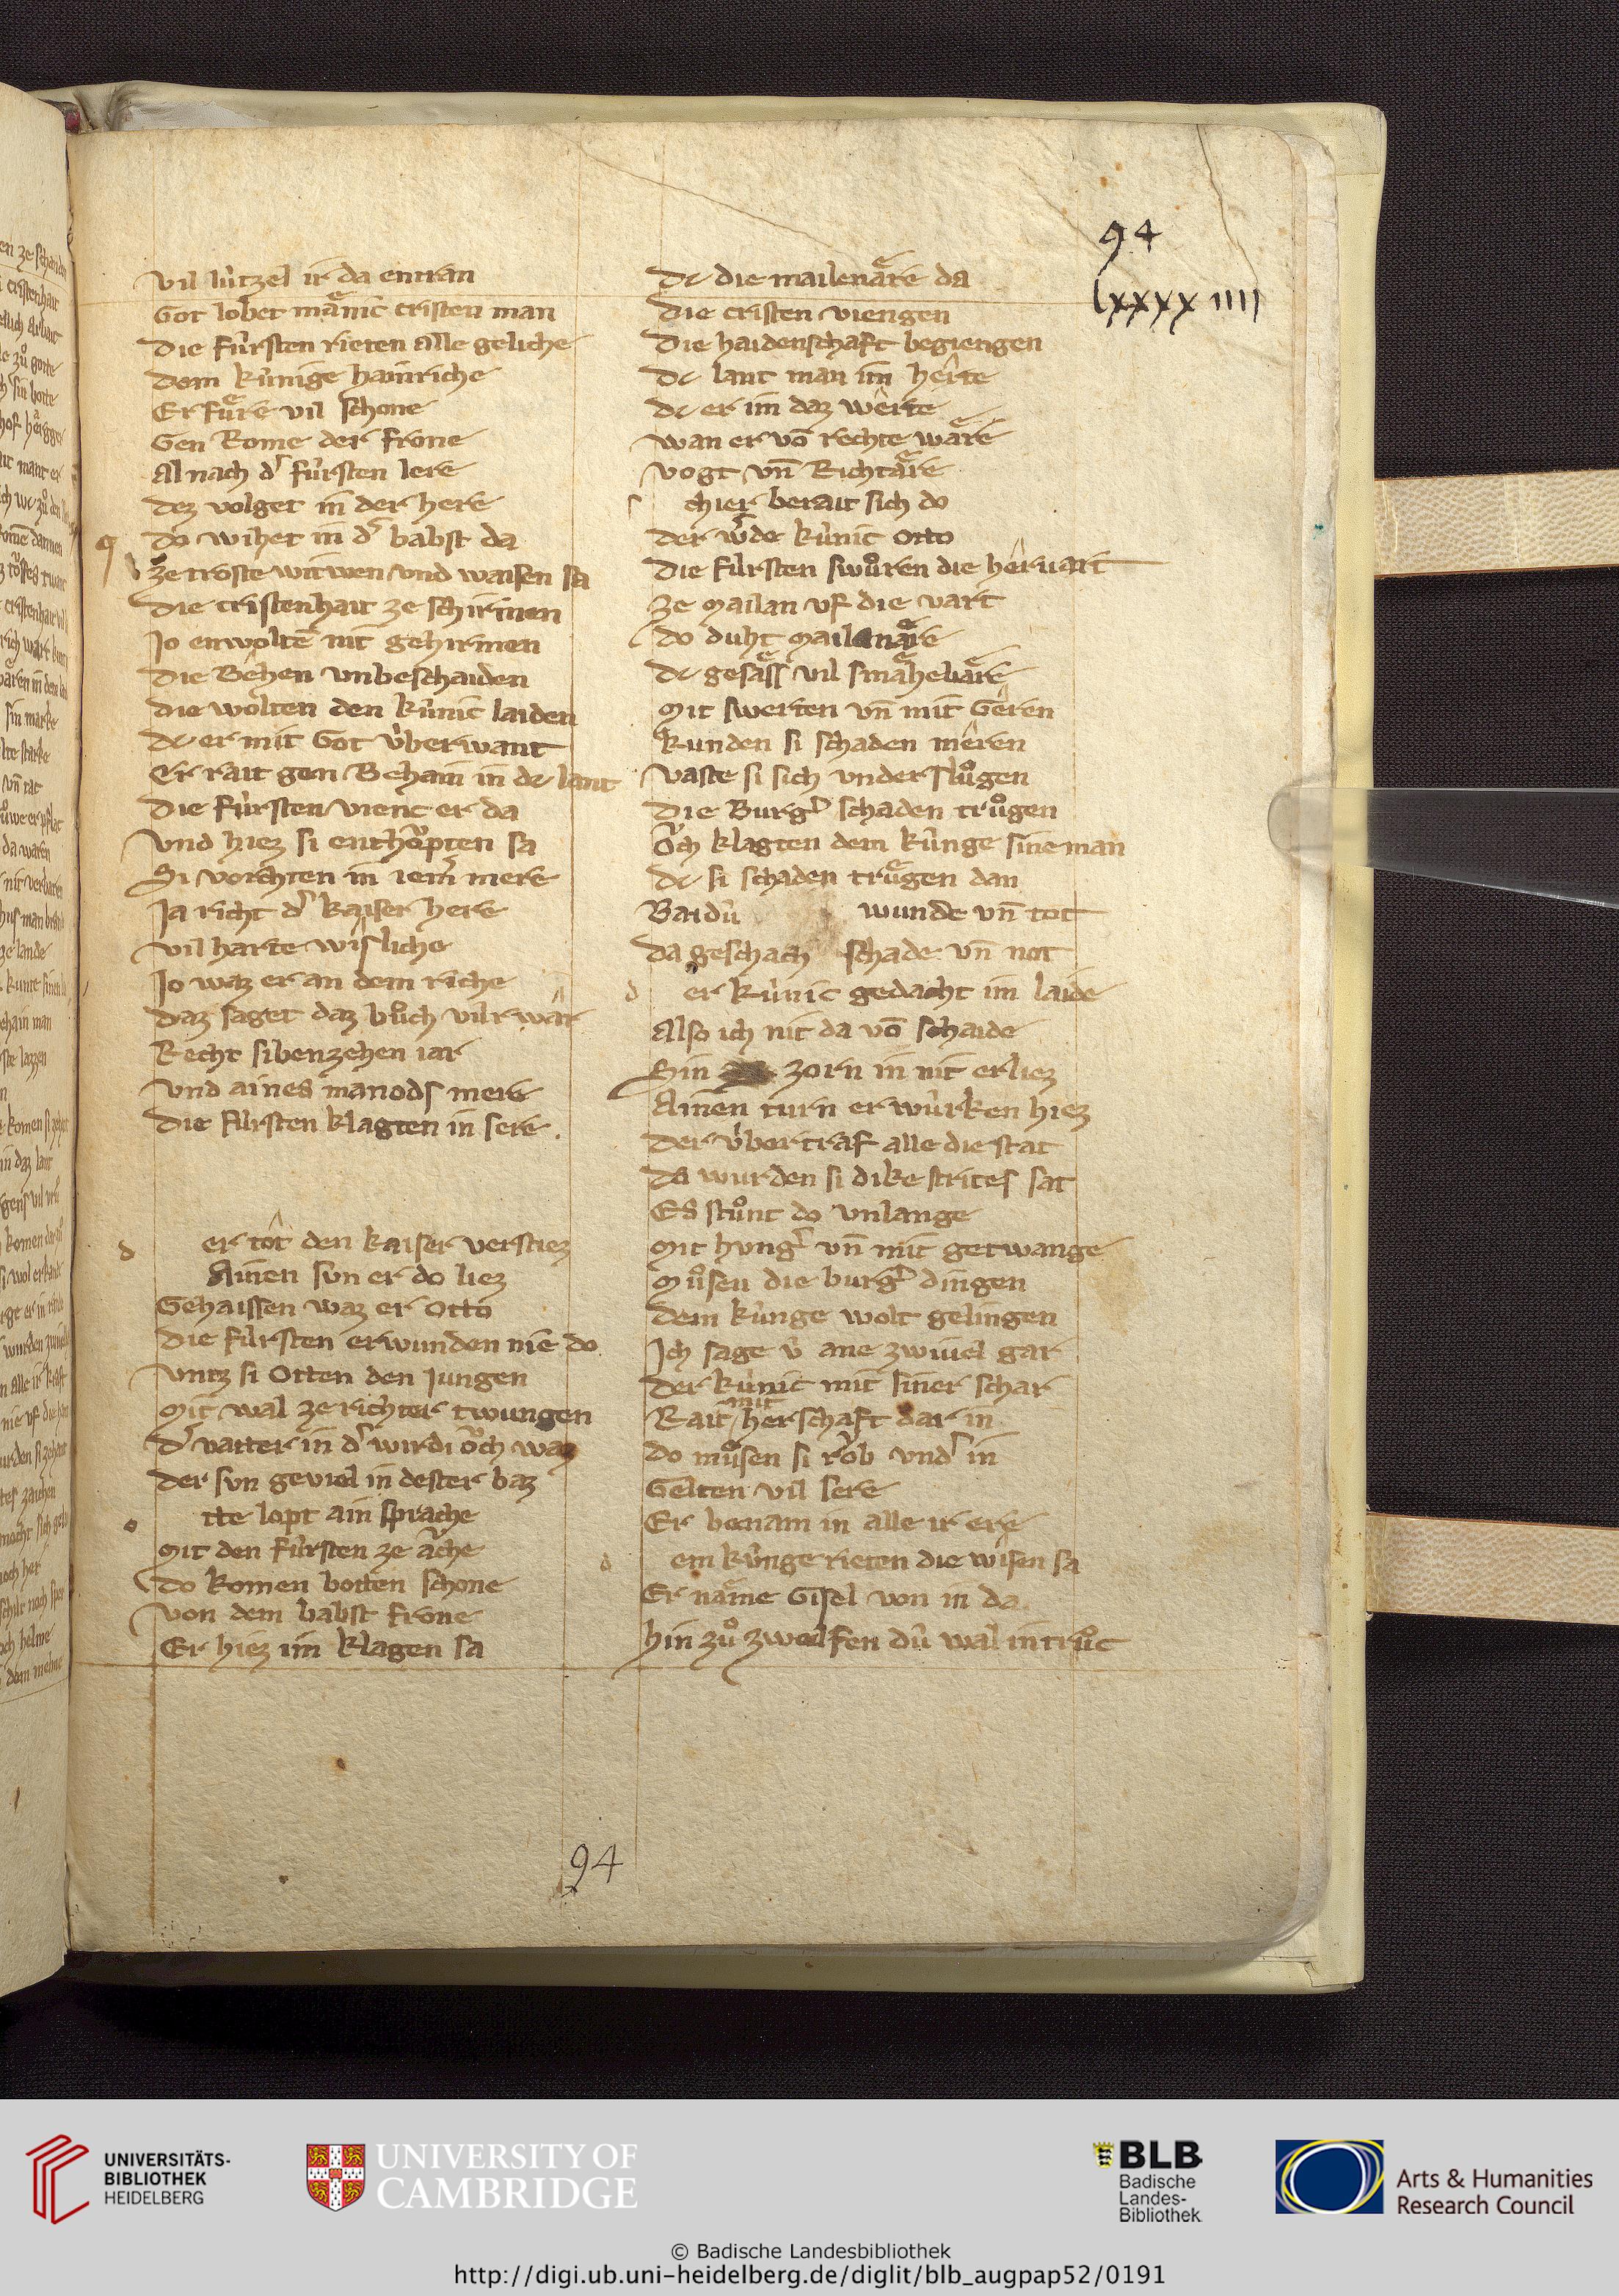 94
lxxxx iiii
vil lu̍tzel ir da entran
Got lobet mänic cristen man
Die fu̍rsten rieten alle geliche
Dem ku̍nige hainriche
Er fu̍re vil schone
Gen Rome der frone
Al nach d̕ fu̍rsten lere
Dez volget in der here
Do wihet in d̕ babst da
Ze troste witwen vnd waisen sa
Die cristenhait ze schirmen
Jo enwoltē nit gehirmen
Die Behen vnbeschaiden
Die wolten den ku̍nic laiden
Dc er mit Got v̍berwant
Er rait gen Beham in dc lant
Die fu̍rsten vienc er da
vnd hiez si enthŏpten sa
Si vorchten in iem̕ mere
Ja richt d̕ kaiser here
vil harte wisliche
Jo waz er an dem riche
Daz saget daz bůch vil war
Recht sibenzehen iar
vnd aines manods mere
Die fu̍rsten klagten in sere.
d er tot den kaiser verstiez
Ainen svn er do liez
Gehaissen waz er Otto
Die fu̍rsten erwunden nie do
vntz si Otten den Jungen
Mit wal ze richter twungen
D̕ vatter in d̕ wirdi ŏch waz
Der svn geviel in dester baz
o tte lopt ain sprache
Mit den fu̍rsten ze ache
Do komen botten schone
von dem babst frone
Er hiez im klagen sa
Dc die mailenäre da
Die cristen viengen
Die haidenschaft begiengen
Dc lant man im herte
Dc er im daz werte
wan er vō rechte wäre
vogt vn̄ Richtäre
s chier berait sich do
Der w̕de ku̍nic Otto
Die fu̍rsten swůren die heruart
Ze Mailan vf die vart
Do duht Mailanäre
Dc gesäss vil smähebäre
Mit swerten vn̄ mit Geren
kunden si schaden meren
vaste si sich vnder slůgen
Die Burg̕ schaden trůgen
Ŏch klagten dem ku̍nge sine man
Dc si schaden tru̍gen dan
Baidu̍ wunde vn̄ tot
Da geschach schade vn̄ not
d er ku̍nic gedacht im laide
Also ich nit da vō schaide
Sin zorn in nit erliez
Ainen turn er wu̍rken hiez
Der v̍bertraf alle die stat
Do wurden si dike strites sat
Es stůnt do vnlange
Mit hvng̕ vn̄ mit getwange
Mu̍sen die burg̕ dingen
Dem ku̍nge wolt gelingen
Jch sage v̍ ane zwiuel gar
Der ku̍nic mit siner schar
Rait mit herschaft dar in
Do mu̍sen si rŏb vnd̕ in
Gelten vil sere
Er benam in alle ir ere
d em ku̍nge rieten die wisen sa
Er näme Gisel von in da
hin zů zwelfen du̍ wal in trůc
94
UNIVERSITÄTS-
BIBLIOTHEK
HEIDELBERG
UNIVERSITY OF
CAMBRIDGE
BLB
Badische
Landes-
Bibliothek
Arts & Humanities
Research Council
© Badische Landesbibliothek
http://digi.ub.uni-heidelberg.de/diglit/blb_augpap52/0191